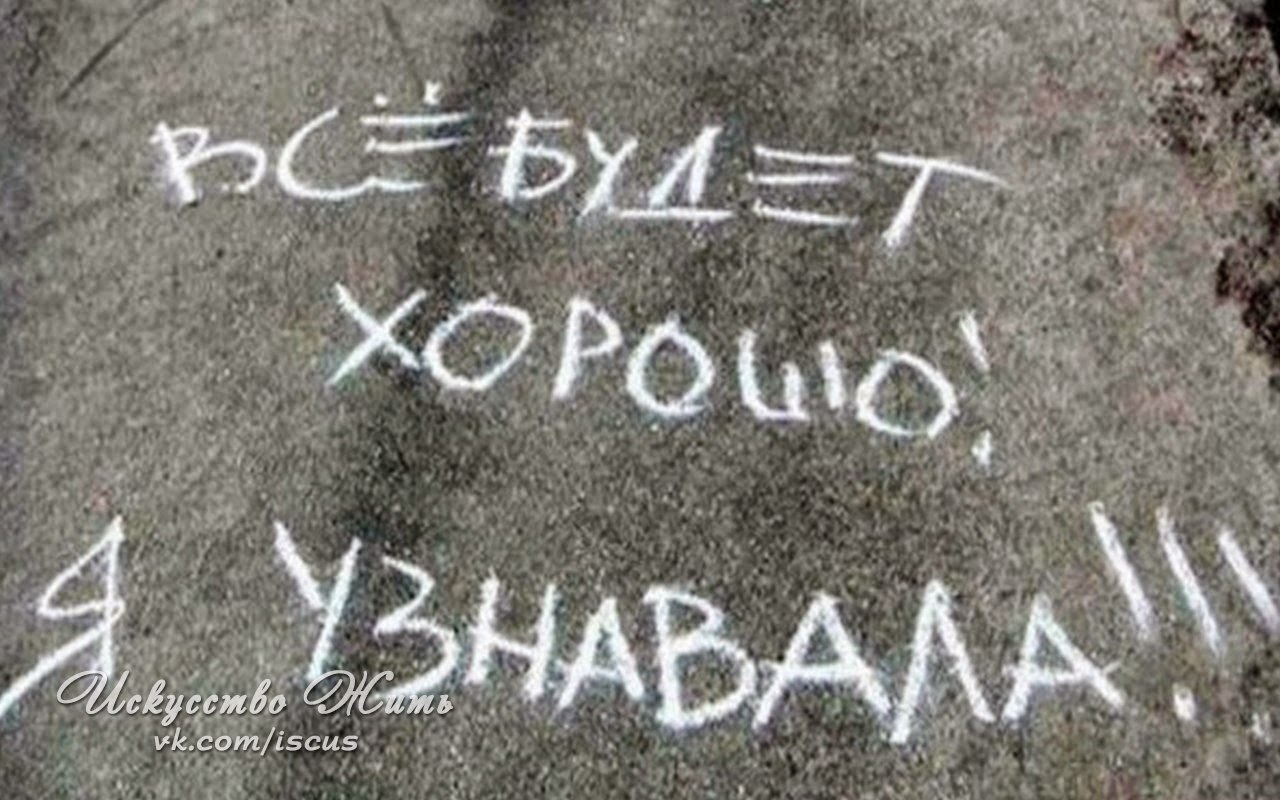 ВСЁ БУДЕТ
ХОРОШО!
Я УЗНАВАЛА!!!
Искусство Жить
vk.com/iscus